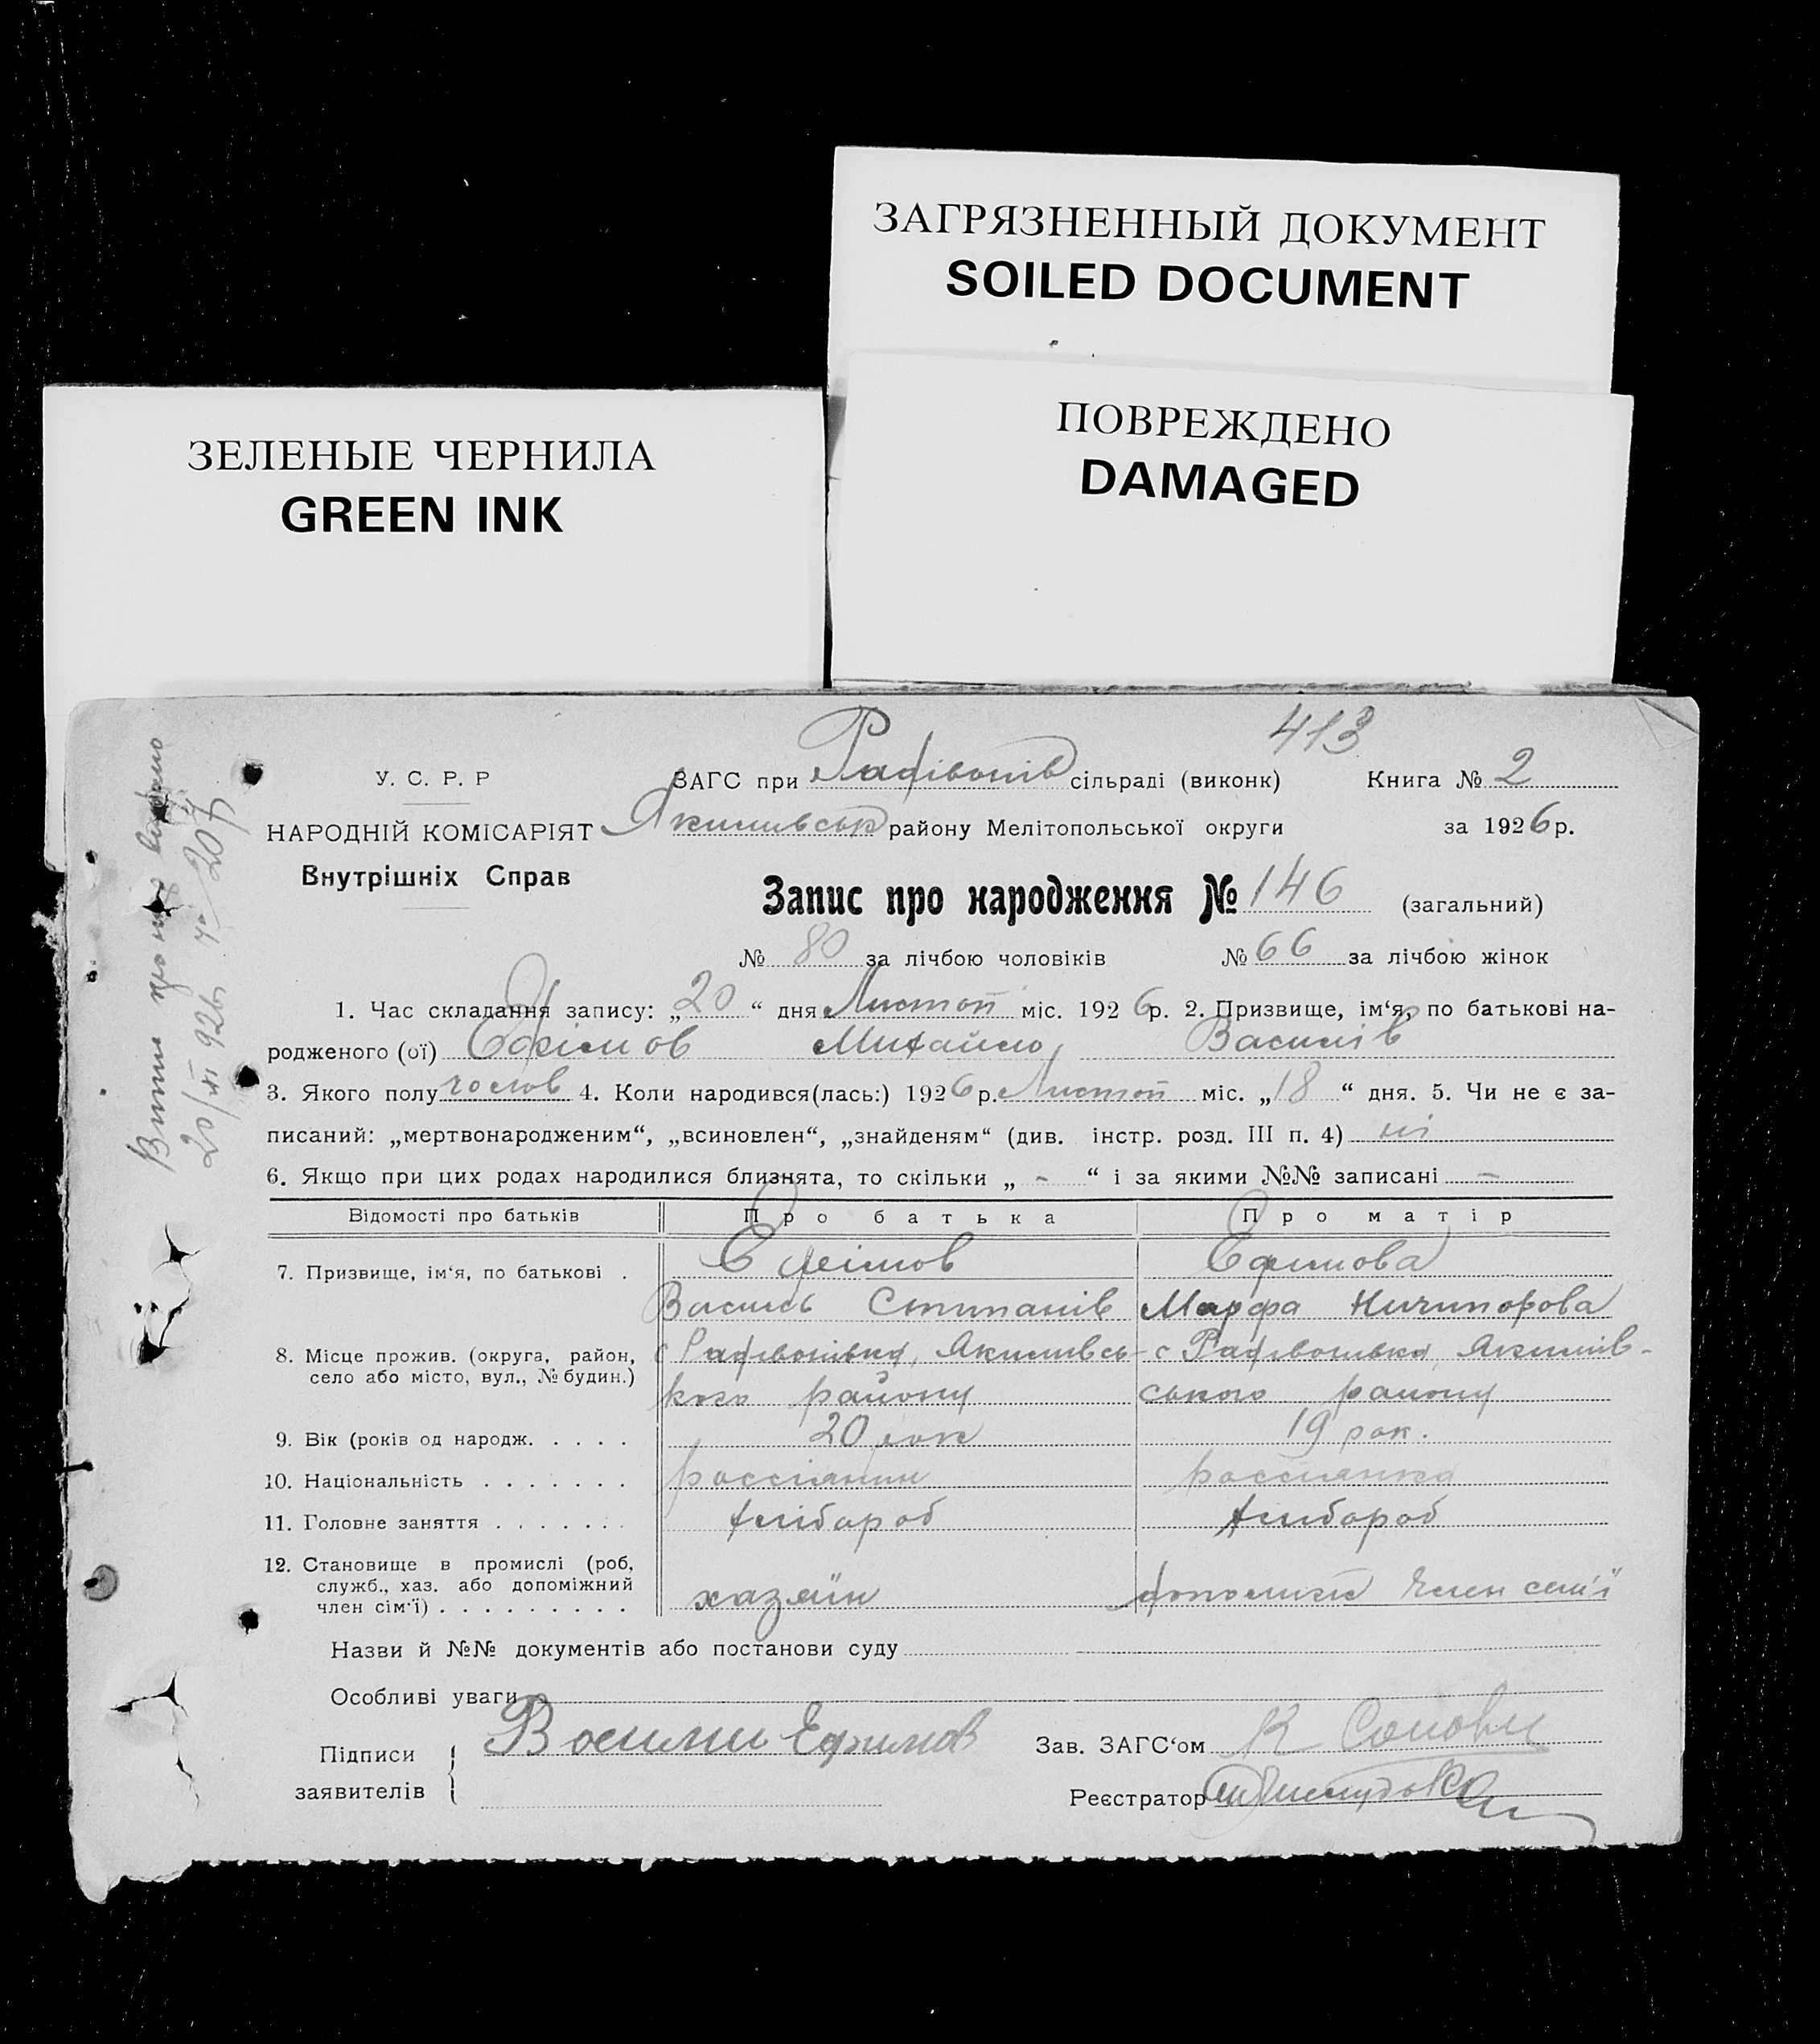 ЗАГРЯЗНЕННЫЙ ДОКУМЕНТ
SOILED DOCUMENT
ПОВРЕЖДЕНО
DAMAGED
ЗЕЛЕНЫЕ ЧЕРНИЛА
GREEN INK
413
У. С. Р. Р
ЗАГС при Радівонів сільраді (виконк) Книга № 2
НАРОДНІЙ КОМІСАРІЯТ Якимівськ району Мелітопольської округи за 1926 р.
Внутрішніх Справ
Запис про народження № 146 (загальний)
№ 80 за лічбою чоловіків № 66 за лічбою жінок
1. Час складання запису: „20“ дня Листоп міс. 1926р. 2. Призвище, ім‘я, по батькові на-
родженого (ої) Єфімов Михайло Василів
3. Якого полу чолов 4. Коли народився(лась:) 1926р. Листоп міс. „18“ дня. 5. Чи не є за-
писаний: „мертвонародженим“, „всиновлен“, „знайденям“ (див. інстр. розд. III п. 4) ні
6. Якщо при цих родах народилися близнята, то скільки „ - “ і за якими №№ записані -
Відомості про батьків Про батька Про матір
7. Призвище, ім‘я, по батькові . Єфімов Єфимова
Василь Стипанів Марфа Ничипорова
8. Місце прожив. (округа, район, с Радивонівка, Якимівсь- с Радивонівка, Якимів-
село або місто, вул., № будин.)
кого району ського району
9. Вік (років од народж. . . . . 20 рок 19 рок.
10. Національність . . . . . . . россіянин россиянка
11. Головне заняття . . . . . . . хлібороб хлибороб
12. Становище в промислі (роб,
служб., хаз. або допоміжний хазяїн допоміжн член сем'ї
член сім‘ї) . . . . . . . . .
Назви й №№ документів або постанови суду
Особливі уваги
Підписи Василий Ефимов Зав. ЗАГС‘ом К
заявителів
Реєстратор
20/XI 926